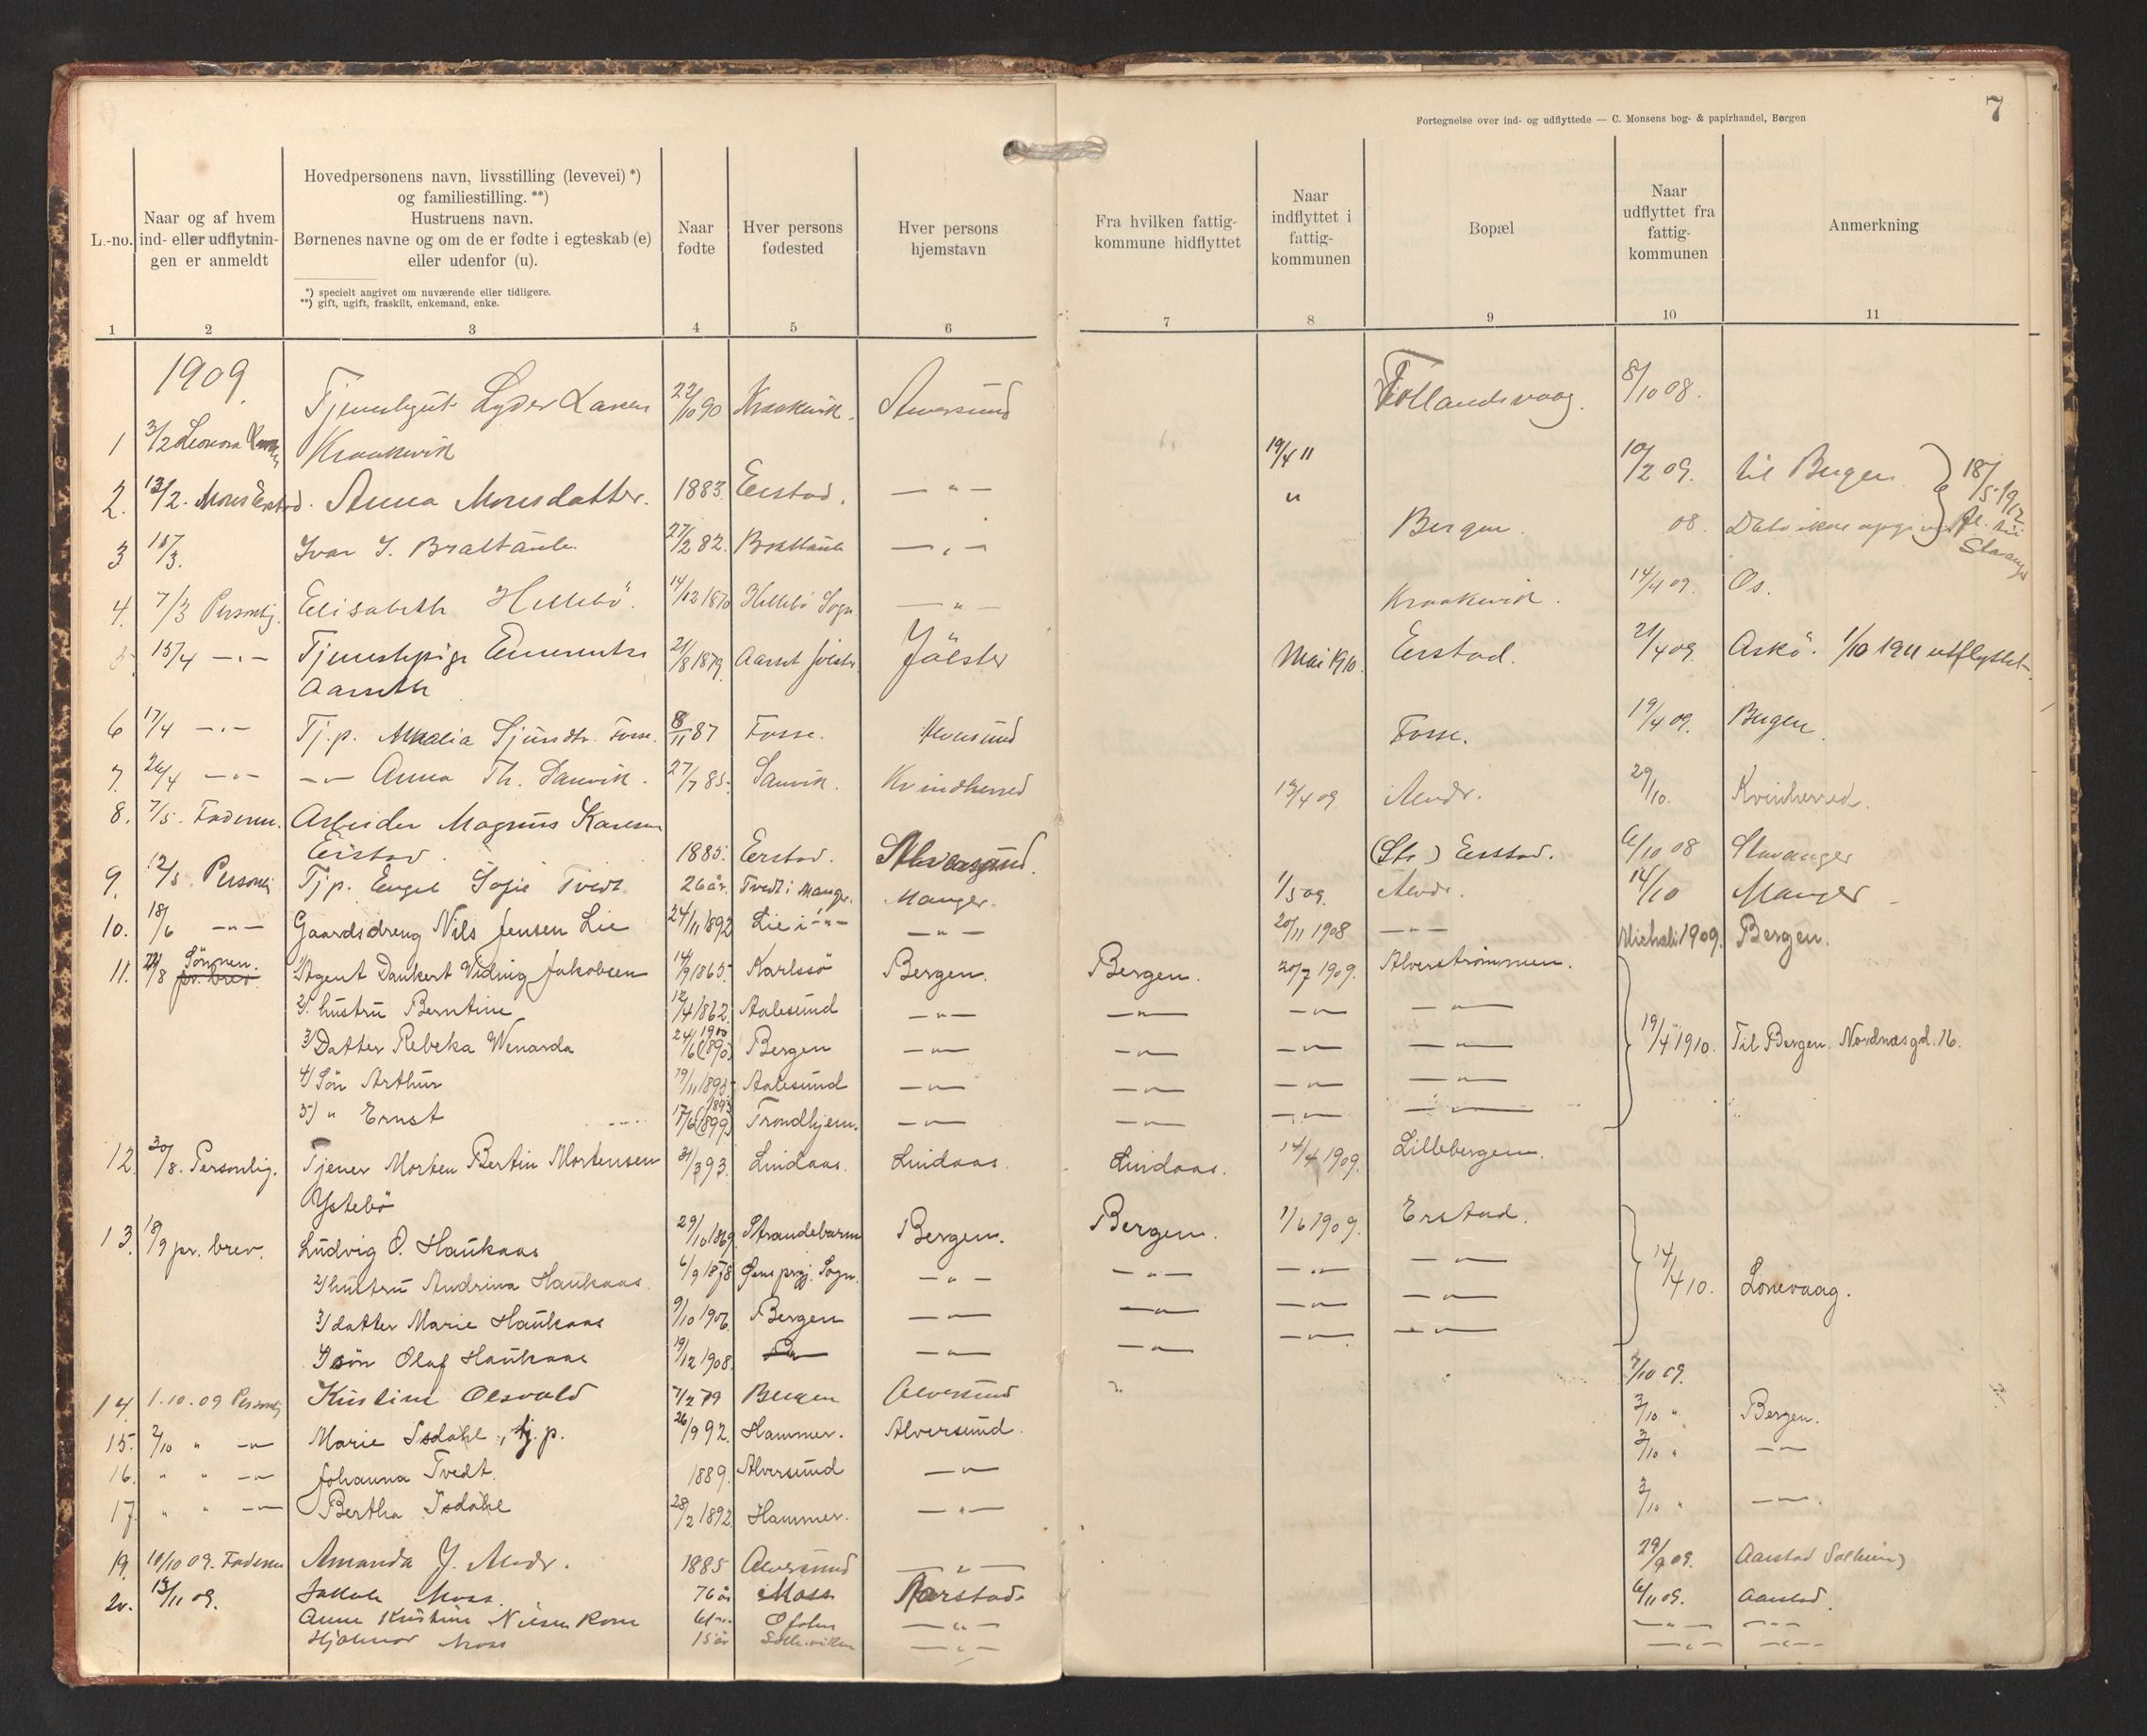 7
Fortegnelse over ind- og udflyttede — C. Monsens bog- & papirhandel, Bergen
L.-no.
Naar og af hvem
ind- eller udflytnin-
gen er anmeldt
Hovedpersonens navn, livsstilling (levevei) *)
og familiestilling. **)
Hustruens navn.
Børnenes navne og om de er fødte i egteskab (e)
eller udenfor (u).
*) specielt angivet om nuværende eller tidligere.
**) gift, ugift, fraskilt, enkemand, enke.
Naar
fødte
Hver persons
fødested
Hver persons
hjemstavn
Fra hvilken fattig-
kommune hidflyttet
Naar
indflyttet i
fattig-
kommunen
Bopæl
Naar
udflyttet fra
fattig-
kommunen
Anmerkning
1 2 3 4 5 6 7 8 9 10 11
1909.
Tjenestegut Lyder Larsen 22/10 90 Kraakvik. Alversund Tollandsvaag. 8/10 08.
1 3/2 Leonora Kraakvik 19/4 11
2. 13/2. Mons Eerstad. Anna Monsdatter. 1883. Eerstad. — " — " 10/2 09. til Bergen 18/5 1912
3 15/3. Ivar I. Brattaule 27/2 82. Brattaule — " — Bergen. 08. Dato ikke opgivet fl. til Stavanger
4. 7/3 Personlig. Elisabeth Hellebö. 14/12 1870 Hellebö Sogn — " — Kraakvik. 14/4 09. Os.
5 15/4 — " — Tjenestepige 21/8 1879. Aarset Jölster. Jölster Mai 1910. Eerstad. 21/4 09. Askö. 1/10 1911 utflyttet.
Aarseth
6 17/4 — " — Tj.p. Amalia Sjursdtr. Fosse. 8/11 87 Fosse. Alversund Fosse. 19/4 09. Bergen.
7. 26/4 — " — — " — Anna Th. Sanvik. 27/7 85. Sanvik. Kvindherred 13/4 09 Alvdr. 29/10. Kvinherred.
8. 7/5. Faderen. Arbeider Magnus Karlsen
Eerstad. 1885. Eerstad. Alversund. (Str) Eerstad. 6/10 08 Stavanger
9. 12/5 Personlig Tjp. Engel Sofie Tvedt 26 år. Tvedt i Manger. Manger. 1/5 09. Alvdr. 14/10 Manger
10. 18/6 — " — Gaardsdreng Nils Jensen Lie 24/11 1892 Lie i — " — — " — 20/11 1908 — " — Mickeli 1909. Bergen.
11. 24/8 Sønnen. pr. brev. 1/ Agent Dankert Viding Jakobsen 14/9 1865. Karlssö Bergen. Bergen. 20/7 1909. Alverströmmen.
2/ hustru Berntine 12/4 1862. Aalesund — " — — " — — " — — " —
3/ Datter Rebeka Wenarda 24/6 1900 (1890) Bergen — " — — " — — " — — " — 19/4 1910. Til Bergen. Nordnæsgd. 16.
4/ Søn Arthur 19/11 1895 Aalesund — " — — " — — " — — " —
5/ " Ernst 17/6 1893 (1899) Trondhjem. — " — — " — — " — — " —
12. 30/8. Personlig. Tjener Morten Bertin Mortensen 31/3 93. Lindaas. Lindaas. Lindaas. 14/4 1909. Lillebergen.
Ystebö
13. 18/9 pr. brev. Ludvig O. Haukaas 29/10 1869. Strandebarm Bergen. Bergen. 1/6 1909. Erstad.
2/ hustru Andrina Haukaas 6/9 1878 Sogn. — " — — " — — " — — " — 14/4 10. Lonevaag.
3/ datter Marie Haukaas 9/10 1906. Bergen — " — — " — — " — — " —
4/ søn Olaf Haukaas 19/12 1908. — " — — " — — " — — " — — " —
14 1.10.09 Personlig Kristine Olsvold 7/2 79 Bergen Alversund 7/10 09.
15. 2/10 " — " — Marie Isdahl, tj.p. 26/9 92. Hammer. Alversund. 3/10 " Bergen.
16. " " — " — Johanna Tvedt. 1889. Alversund — " — 3/10 " — " —
17. " " — " — Bertha Isdahl 28/2 1892. Hammer. — " — 3/10 " — " —
19. 11/10 09. Faderen Amanda J. Alvdr. 1885 Alversund — " — 29/9 09. Aarstad Solheim
20. 13/11 09. Jakob Moss. 76 år Moss Aarstad. 6/11 09. Aarstad.
Anne Kristine — " — — " — — " —
Hjalmar Moss 15 år — " — — " — — " —